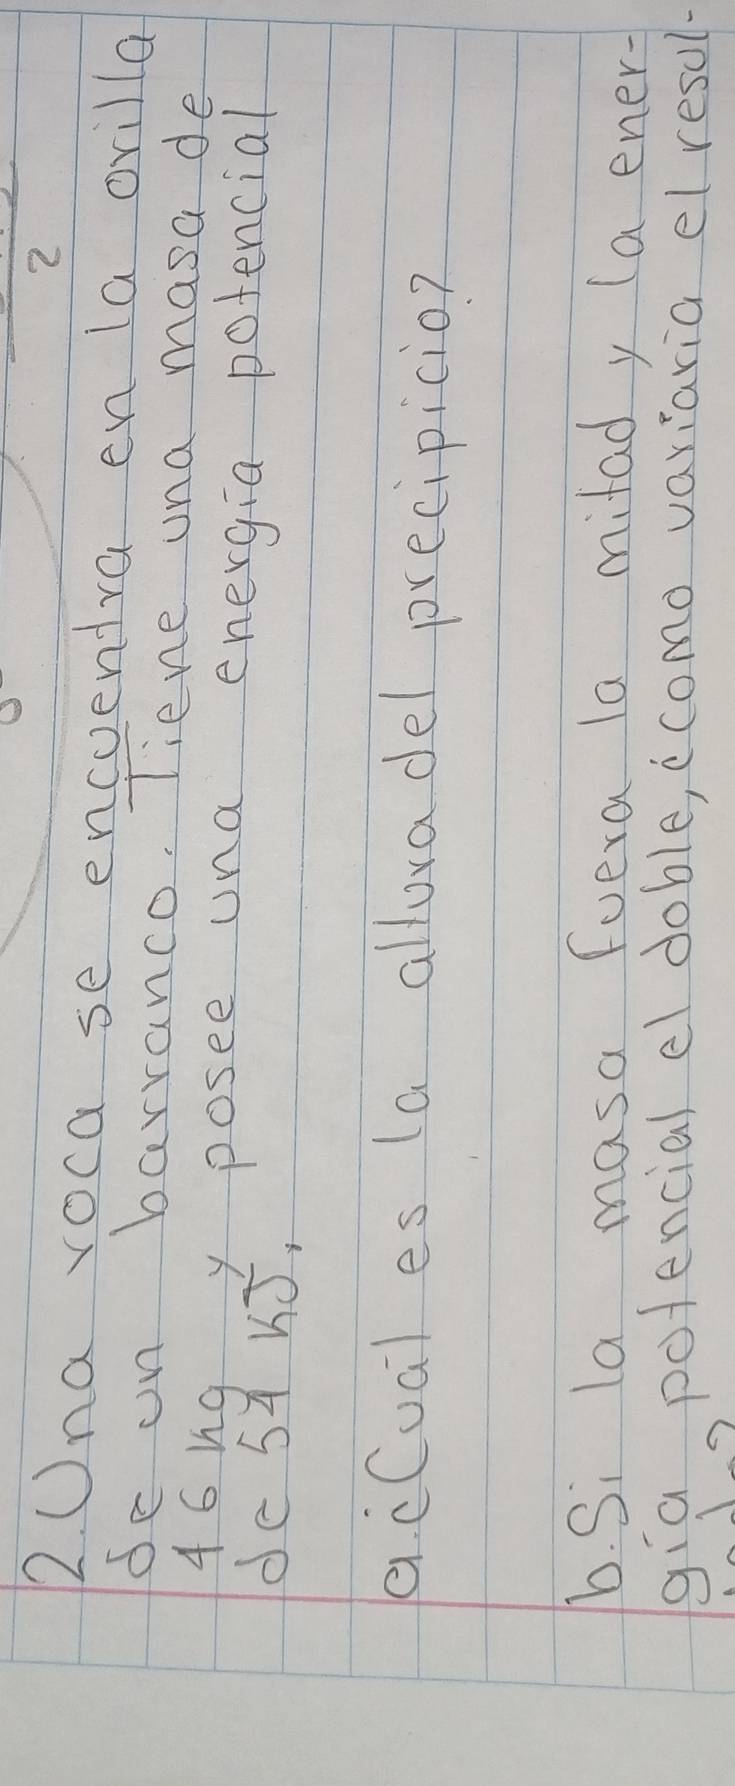 2
2. Una roca se encuentra en la orilla
de un barranco. Tiene una masa de
46 kg y posee una energía potencial
de 54 KJ,
a. ¿Cuál es la altura del precipicio?
b. Si la masa fuera la mitad y la ener-
gia potencial el doble, ¿como variaria el resul-